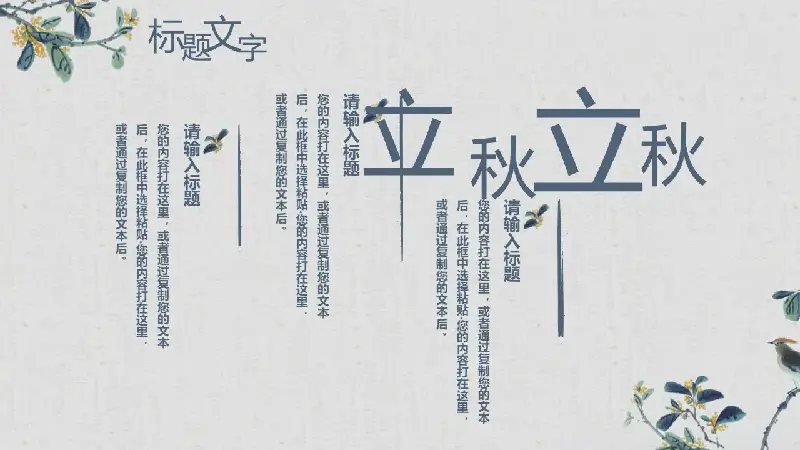 标题文字
立秋立秋
请输入标题
您的内容打在这里，或者通过复制您的文本
后，在此框中选择粘贴.您的内容打在这里，
或者通过复制您的文本后。
请输入标题
您的内容打在这里，或者通过复制您的文本
后，在此框中选择粘贴.您的内容打在这里，
或者通过复制您的文本后。
请输入标题
您的内容打在这里，或者通过复制您的文本
后，在此框中选择粘贴.您的内容打在这里，
或者通过复制您的文本后。